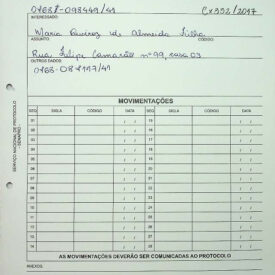 01687-098449/41 Cx352/2017
INTERESSADO:
Maria Queiroz de Almeida Filha
ASSUNTO:
Rua Felipe Camarão nº 99, casa 03
OUTROS DADOS:
0168-08 /41
MOVIMENTAÇÕES
SEQ. SIGLA CÓDIGO DATA SEQ. SIGLA CÓDIGO DATA
01 / / 15 / /
02 / / 16 / /
03 / / 17 / /
04 / / 18 / /
05 / / 19 / /
06 / / 20 / /
07 / / 21 / /
08 / / 22 / /
09 / / 23 / /
10 / / 24 / /
11 / / 25 / /
12 / / 26 / /
13 / / 27 / /
14 / / 28 / /
AS MOVIMENTAÇÕES DEVERÃO SER COMUNICADAS AO PROTOCOLO
ANEXOS:
SERVIÇO NACIONAL DE PROTOCOLO